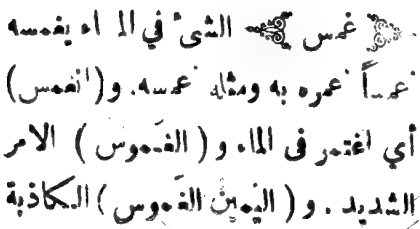 غمس الشئ في الماء يغمسه
غمساً غمره به ومثله غمسه. و(انغمس)
أي اغتمر فى الماء و (الغَموس) الامر
الشديد. و (اليمين الغَموس) الكاذبة